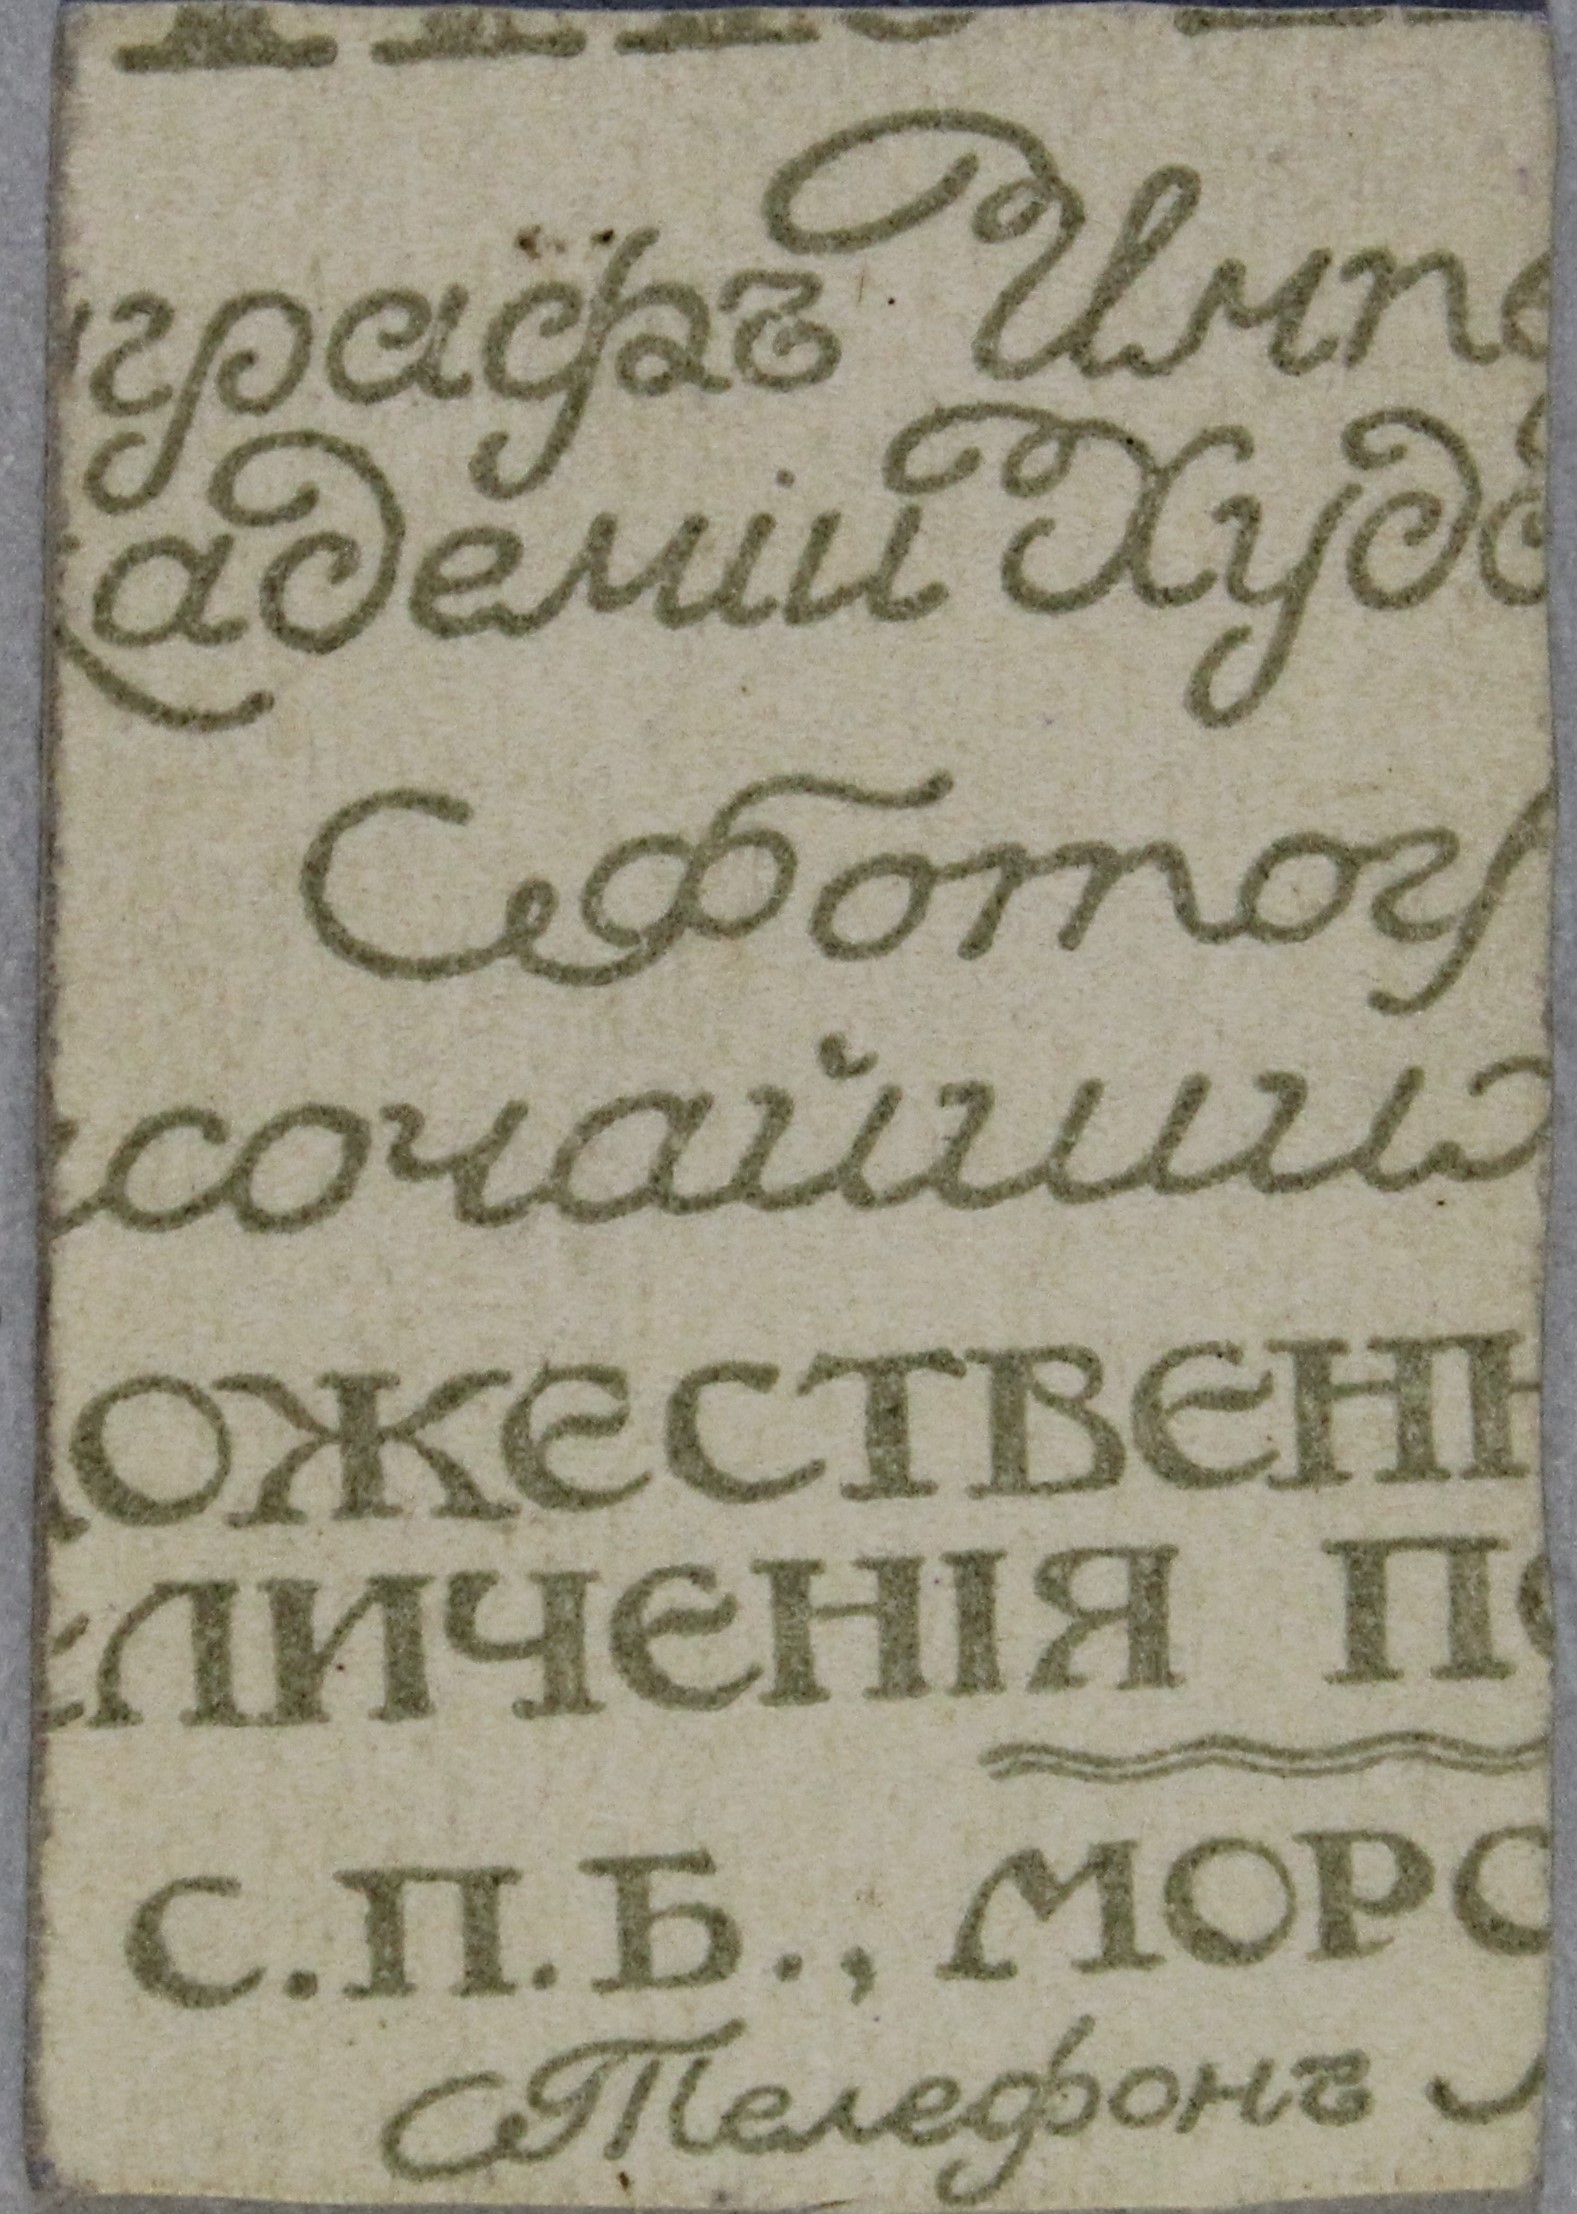 графъ Импе
адеміи Худо
Фотогр
сочайших
ОЖЕСТВЕНН
ЛИЧЕНІЯ ПО
С.П.Б., МОРС
Телефонъ